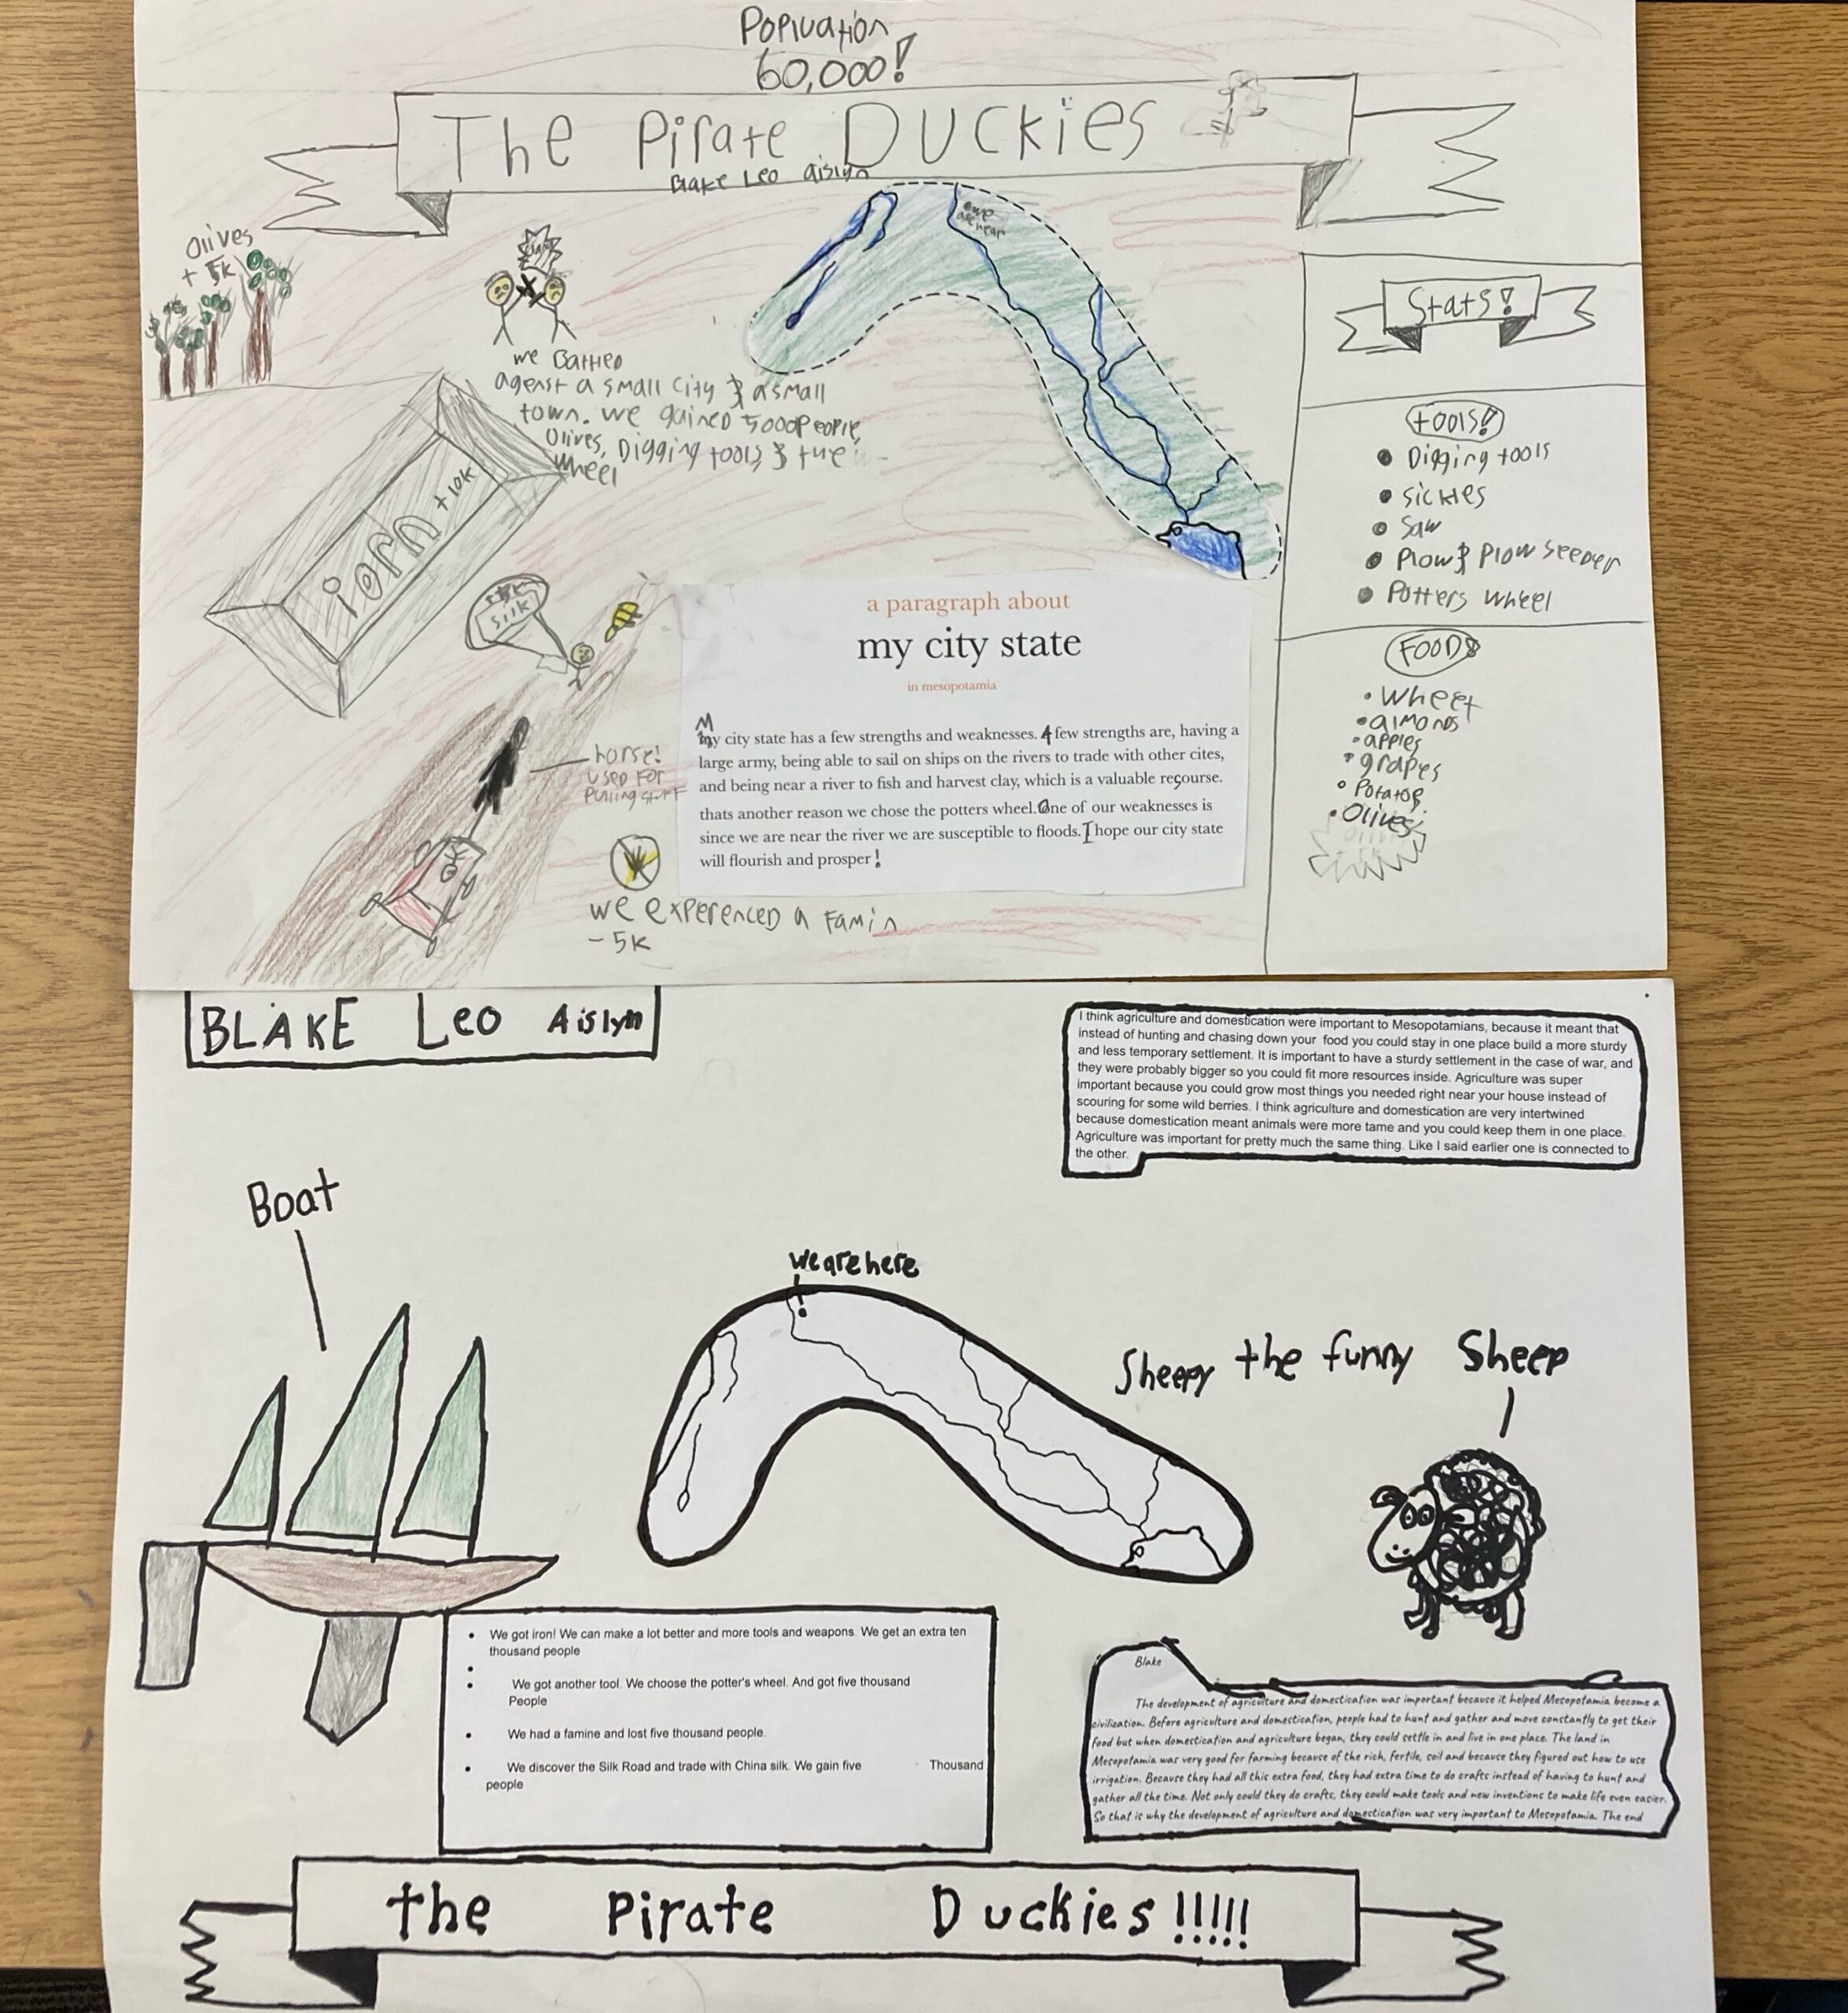 Popluation
60,000!
The Pirate Duckies
Blake Leo aislyn
Olives
+ 5k
we Battled
agenst a small city & a small
town. we gained 5000 People,
Olives, Digging tools, & the
wheel
we
are hear
iorn +10k
silk
horse!
used for
pulling stuff
we experenced a famin
- 5k
a paragraph about
my city state
in mesopotamia
My city state has a few strengths and weaknesses. A few strengths are, having a
large army, being able to sail on ships on the rivers to trade with other cites,
and being near a river to fish and harvest clay, which is a valuable recourse.
thats another reason we chose the potters wheel. One of our weaknesses is
since we are near the river we are susceptible to floods. I hope our city state
will flourish and prosper!
Stats!
tools!
• Digging tools
• sickles
• Saw
• Plow & Plow seeder
• Potters wheel
FOODS
• wheet
• almonds
• apples
• grapes
• Potatos
• Olives
BLAKE Leo Aislyn
I think agriculture and domestication were important to Mesopotamians, because it meant that
instead of hunting and chasing down your food you could stay in one place build a more sturdy
and less temporary settlement. It is important to have a sturdy settlement in the case of war, and
they were probably bigger so you could fit more resources inside. Agriculture was super
important because you could grow most things you needed right near your house instead of
scouring for some wild berries. I think agriculture and domestication are very intertwined
because domestication meant animals were more tame and you could keep them in one place.
Agriculture was important for pretty much the same thing. Like I said earlier one is connected to
the other.
Boat
we are here
!
Sheepy the funny Sheep
• We got iron! We can make a lot better and more tools and weapons. We get an extra ten
thousand people
•
• We got another tool. We choose the potter's wheel. And got five thousand
People
• We had a famine and lost five thousand people.
• We discover the Silk Road and trade with China silk. We gain five Thousand
people
Blake
The development of agriculture and domestication was important because it helped Mesopotamia become a
civilization. Before agriculture and domestication, people had to hunt and gather and move constantly to get their
food but when domestication and agriculture began, they could settle in and live in one place. The land in
Mesopotamia was very good for farming because of the rich, fertile, soil and because they figured out how to use
irrigation. Because they had all this extra food, they had extra time to do crafts instead of having to hunt and
gather all the time. Not only could they do crafts, they could make tools and new inventions to make life even easier.
So that is why the development of agriculture and domestication was very important to Mesopotamia. The end
the Pirate Duckies!!!!!